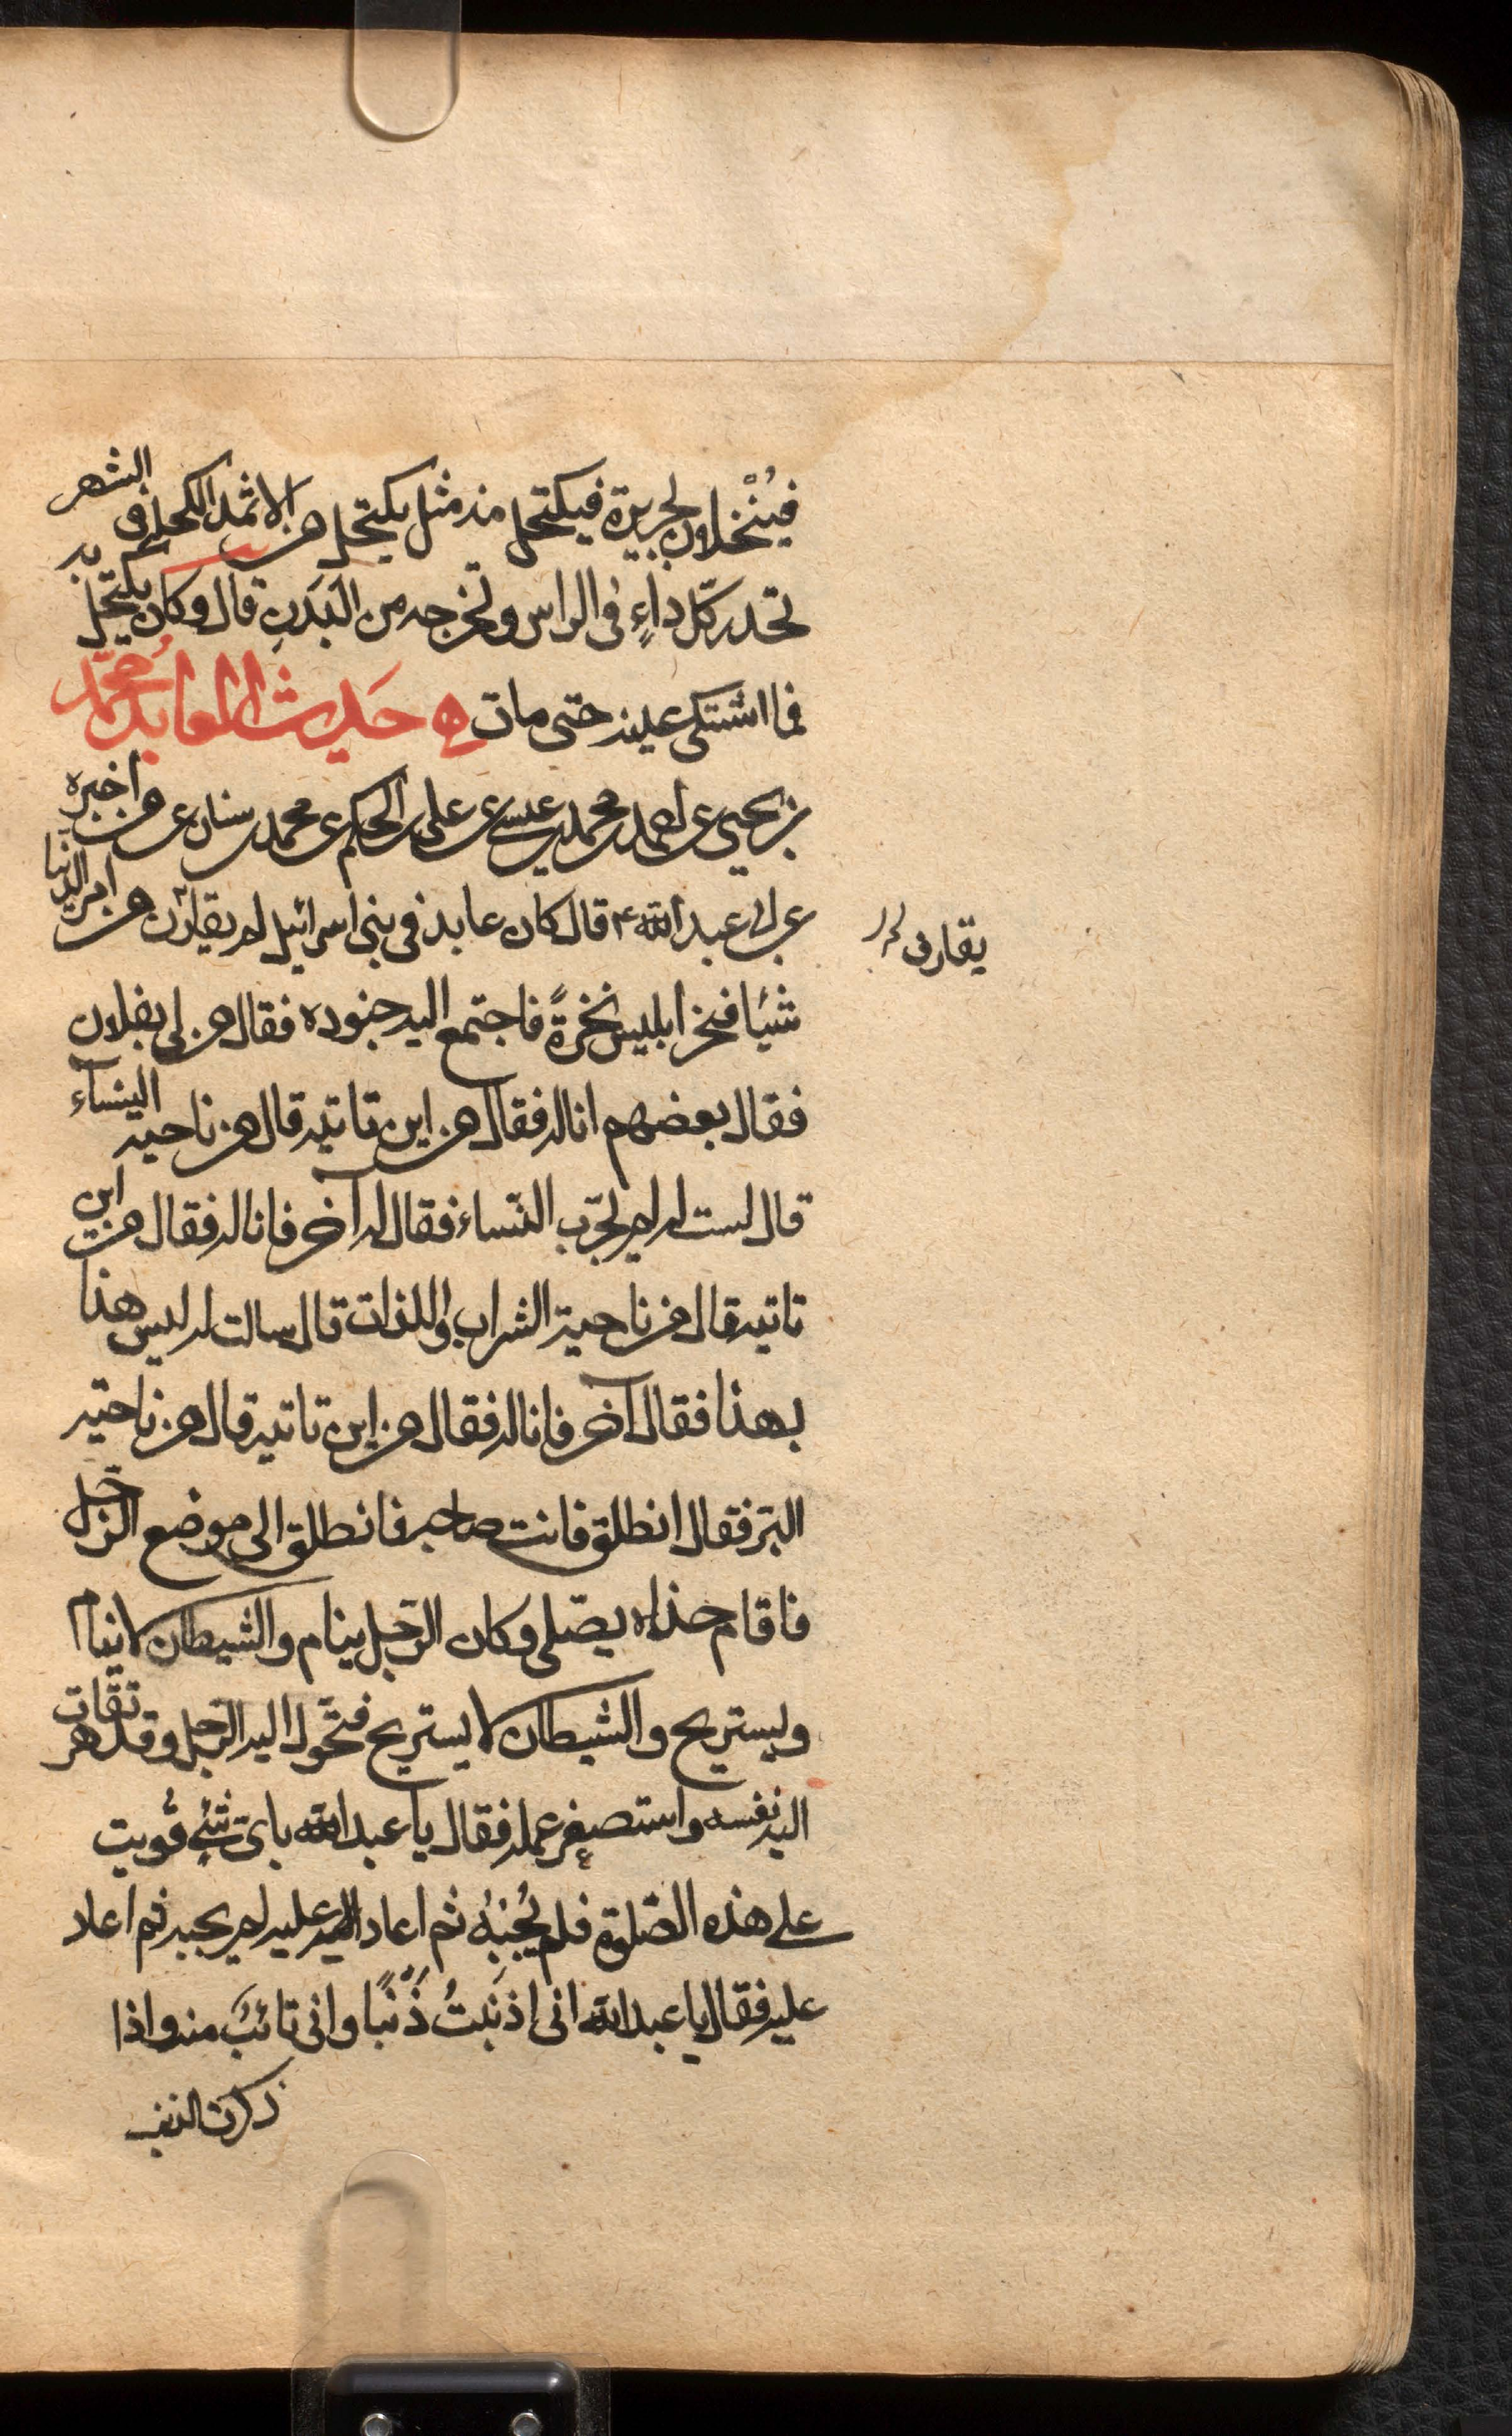 فيُنْخلان بجريرة فيكتحل منه مثل يكتحل من الاثمد الكحلة فى الشهر
تحدر كلّ داءٍ فى الراس وتخرجه من البَدَنِ قال وكان يكتحل به
فما اشتكى عينه حتى مات ه حَديث العابد مُحمّد
بن يحيى عن احمد بن محمد بن عيسى عن على بن الحكم عن محمد بن سنان عمن اخبره
عن ابى عبد الله ع قال كان عابد فى بنى اسرائيل لم يقارن من امر الدنيا
يقارف
شيئا فنخر ابليس نخرةً فاجتمع اليه جنوده فقال من لى بفلان
فقال بعضهم انا له فقال من اين تاتيه قال من ناحية النساء
قال لست له لم يجرّب النّساء فقال له آخر فانا له فقال من اين
تاتيه قال من ناحية الشراب واللذات قال سالت له ليس هذا
بهذا فقال آخر فانا له فقال من اين تاتيه قال من ناحية
البرّ فقال انطلق فانت صاحبه فانطلق الى موضع الرّجل
فاقام حذاه يصّلى وكان الرّجل ينام والشيطان لا ينام
ويستريح والشيطان لا يستريح فتحّول اليه الرّجل وقد تقاصرت
اليه نفسه واستصغر عمله فقال يا عبد الله باىّ شئٍ قَويت
على هذه الصّلوة فلم يُجِبْهُ ثم اعاد عليه لم يجبه ثم اعاد
عليه فقال يا عبد الله انى اذنبتُ ذَنْبًا وانى تائبٌ منه واذا
ذكرت الذنب